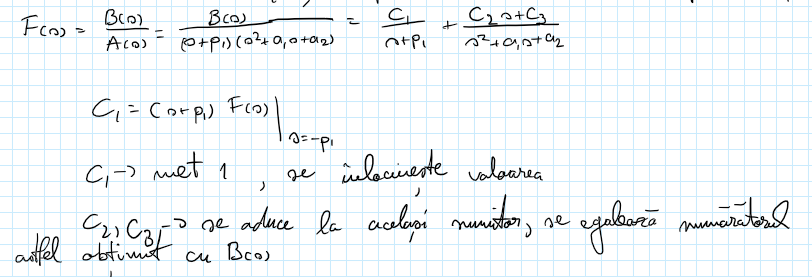 F(s) = B(s)/A(s) = B(s)/((s+p₁)(s²+a₁s+a₂)) = C₁/(s+p₁) + (C₂s+C₃)/(s²+a₁s+a₂)
C₁ = (s+p₁) F(s) |ₛ₌₋ₚ₁
C₁ → met 1, se înlocuiește valoarea
C₂, C₃ → se aduce la același numitor, se egalează numărătorul
astfel obținut cu B(s)